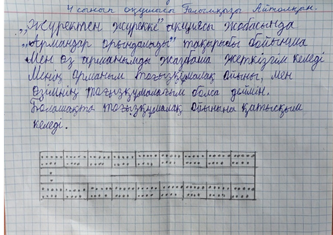 4 сынып оқушысы Айталқан.
„Жүректен жүрекке" акциясы жобасында
„Армандар орындалады" тақырыбы бойынша
Мен өз арманымды жазбаша жеткізгім келеді
Менің арманым тоғызқұмалақ ойыны, мен
Өзімнің тоғызқұмалағым болса деймін.
Болашақта тоғызқұмалақ ойынына қатысқым
келеді.